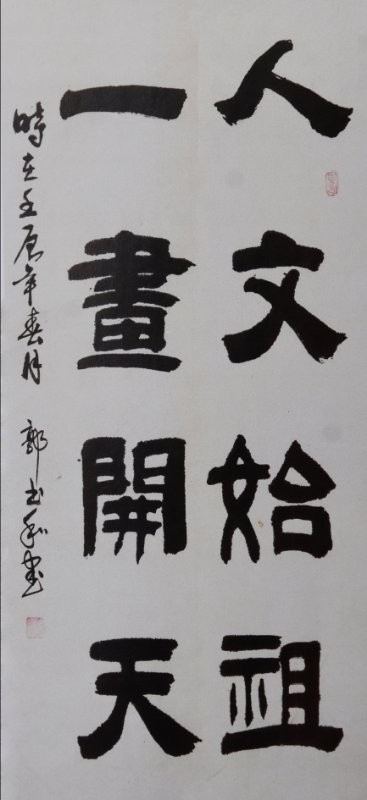 人文始祖
一畫開天
時在壬辰年春月 郭玉承書